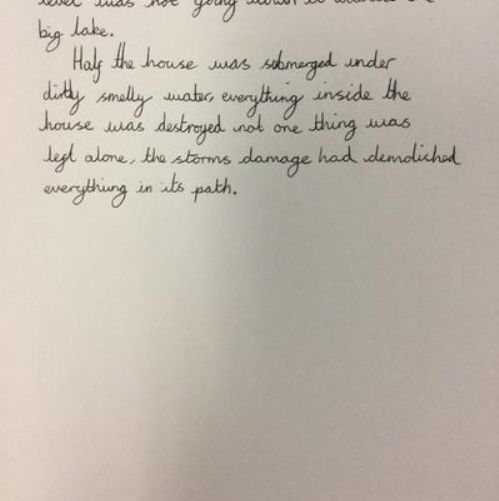 level was not going down it
big lake.
Half the house was submerged under
dirty smelly water, everything inside the
house was destroyed not one thing was
left alone, the storms damage had demoliched
everything in its path.